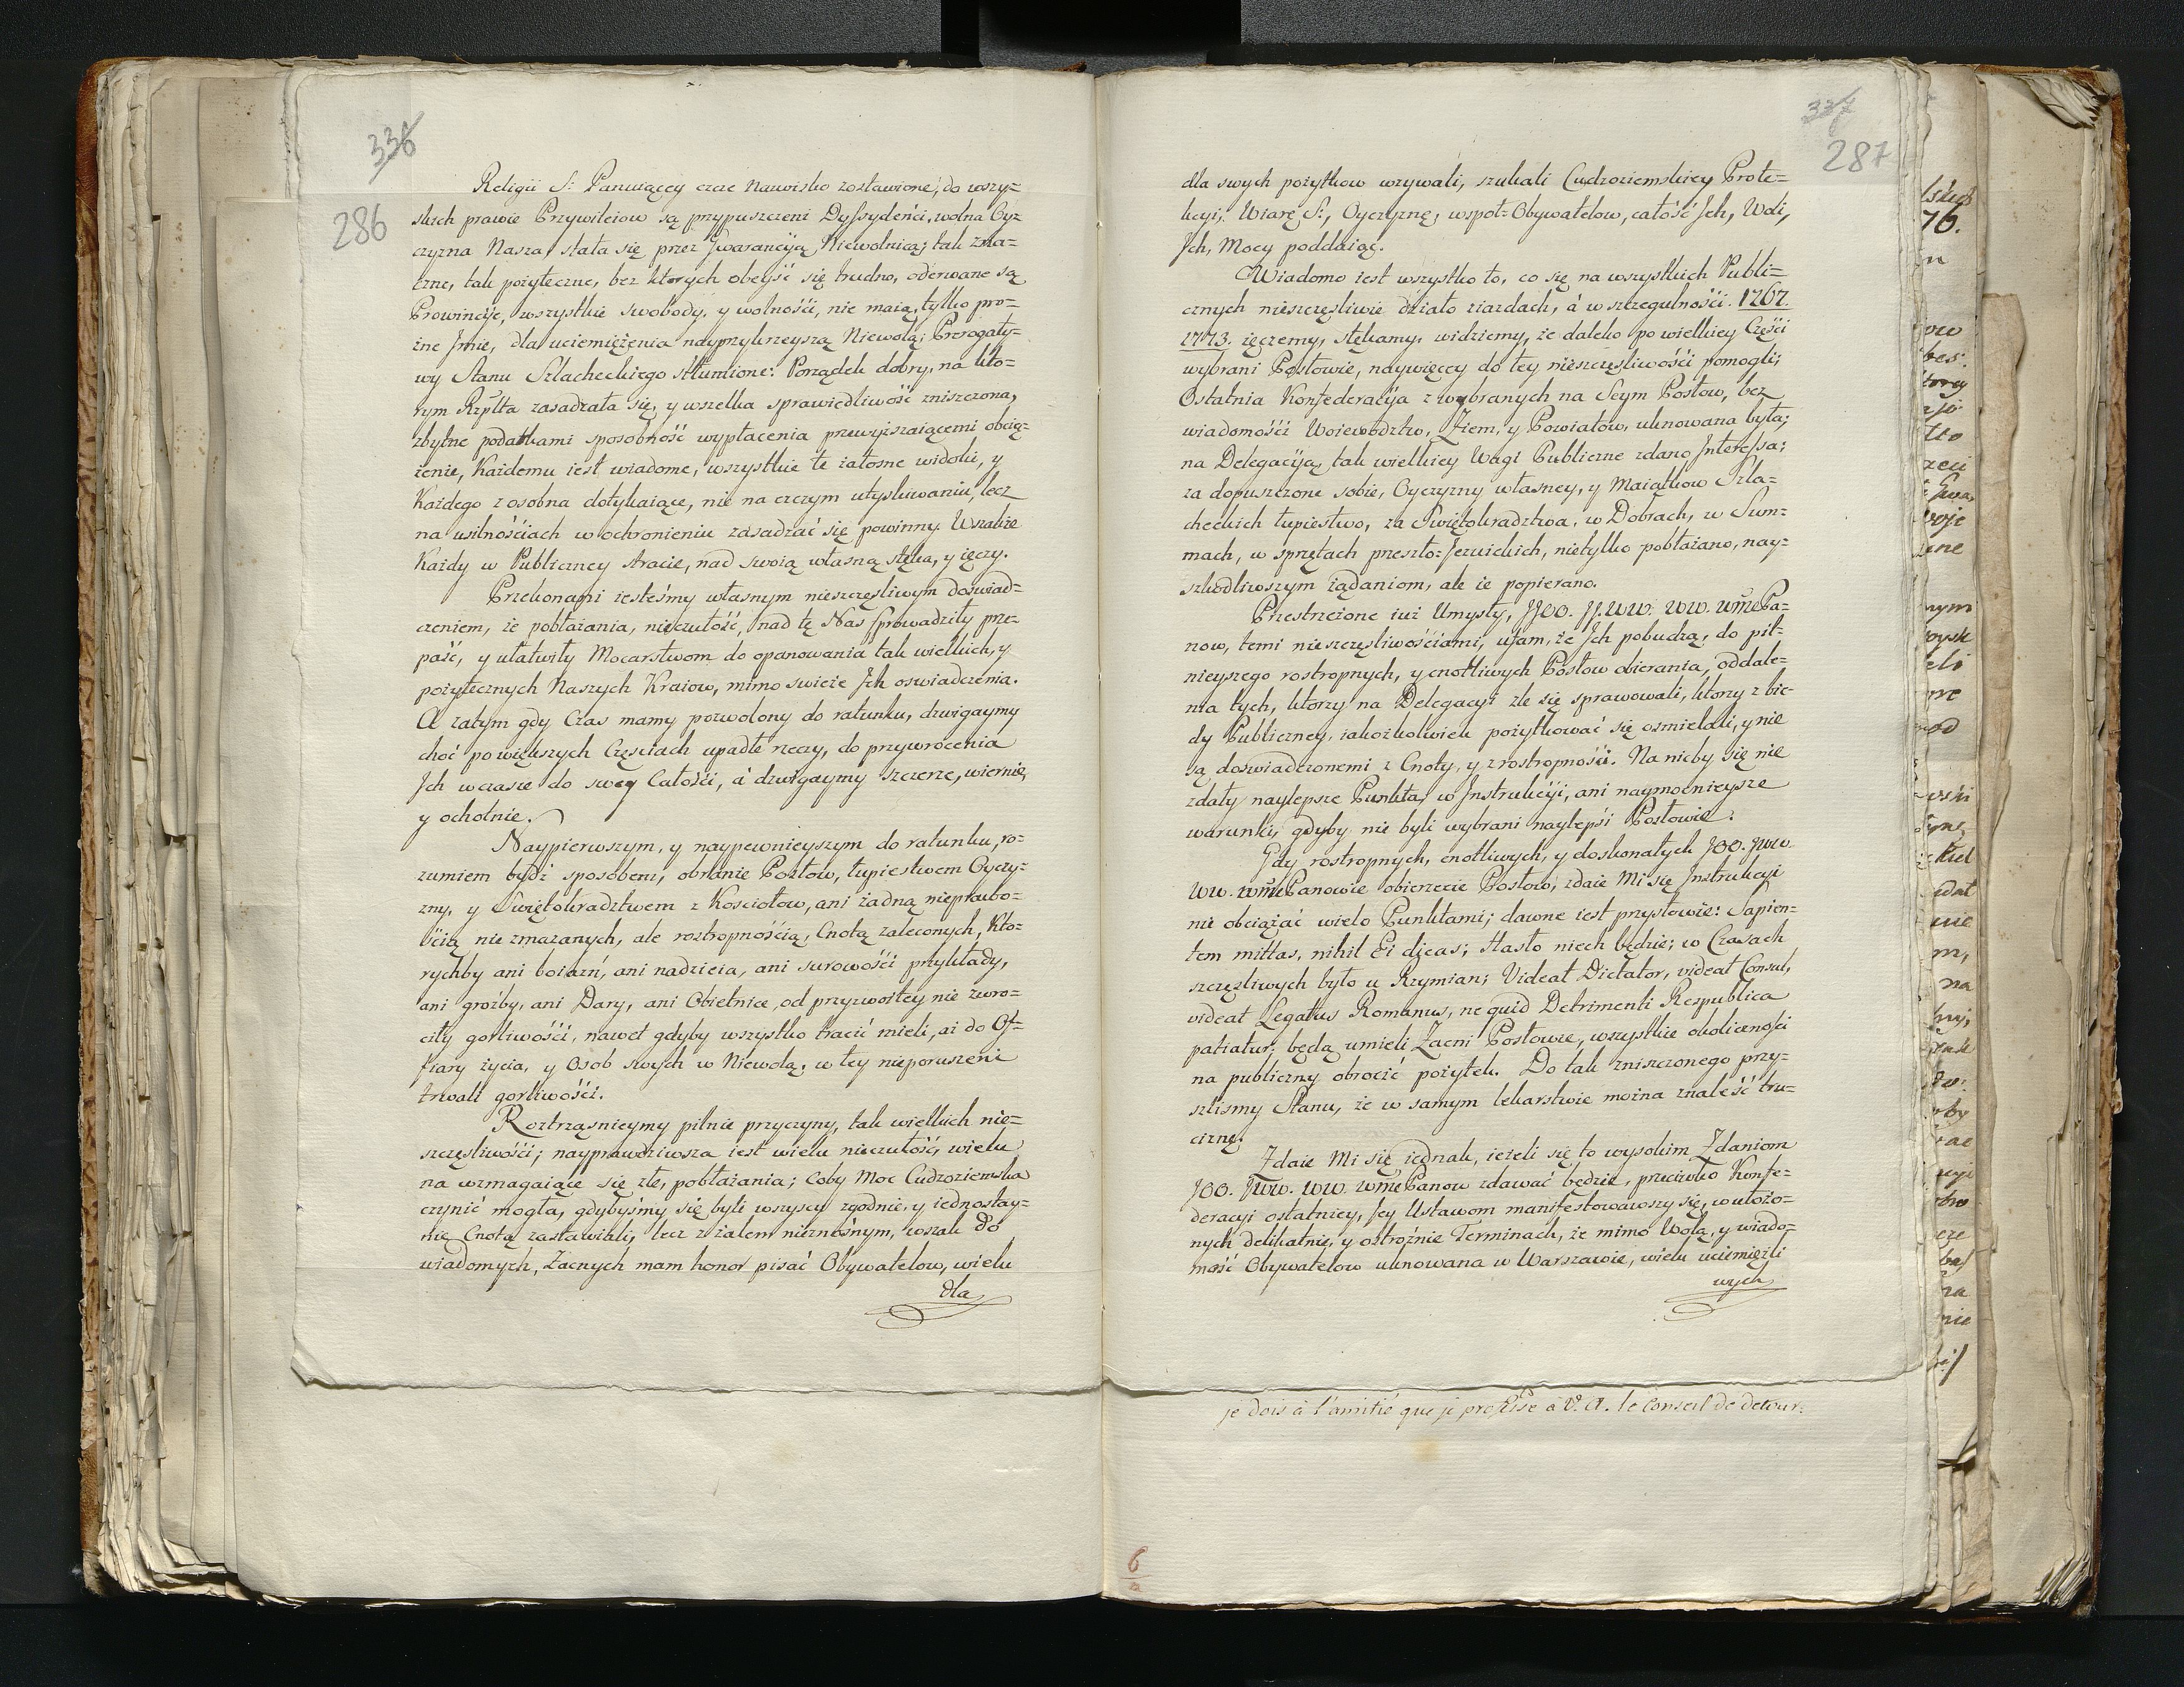 336
286
Religii S: Panuiącey czcze Nazwisko zostawione, do wszy=
stkich prawie Przywileiow są przypuszczeni Dyssydenći, wolna Oy=
czyzna Nasza stała się przez Gwarancyią Niewolnicą; tak zna=
czne, tak pożyteczne, bez ktorych obeyść się trudno, oderwane są
Prowincye, wszystkie swobody, y wolnośći, nie maią, tylko pro=
żne Jmie, dla uciemiężenia nayprzykrzeyszą Niewolą; Prerogaty=
wy Stanu Szlacheckiego stłumione: Porządek dobry, na kto=
rym Rzplta zasadzała się, y wszelka sprawiedliwość zniszczona,
zbytne podatkami sposobność wypłacenia przewyższaiącemi obcią=
żenie, Każdemu iest wiadome, wszystkie te żałosne widoki, y
Każdego z osobna dotykaiące, nie na czczym utyskiwaniu, lecz
na usilnośćiach w ochronieniu zasadzać się powinny. Wszakże
Każdy w Publiczney stracie, nad swoią własną stęka, y ięczy.
Przekonami iesteśmy własnym nieszczęśliwym doświad=
czeniem, że pobłażania, nieczułość, nad tę Nas sprowadziły prze=
paść, y ułatwiły Mocarstwom do opanowania tak wielkich, y
pożytecznych Naszych Kraiow, mimo swieże Jch oswiadczenia.
A zatym gdy Czas mamy pozwolony do ratunku, dzwigaymy
choć po większych Częsciach upadłe rzeczy, do przywrocenia
Jch w czasie do swey Całośći, á dzwigaymy szczerze, wiernie,
y ochotnie.
Naypierwszym, y naypewnieyszym do ratunku, ro=
zumiem bydź sposobem, obranie Posłow, łupiestwem Oyczy=
zny, y Swiętokradztwem z Kosciołow, ani żadną nieprawo=
śćią nie zmazanych, ale roztropnośćią, Cnotą zaleconych, Kto=
rychby ani boiaźń, ani nadzieia, ani surowośći przykłady,
ani groźby, ani Dary, ani Obietnice, od przyzwoitey nie zwro=
ciły gorliwośći, nawet gdyby wszystko tracić mieli, aż do Of=
fiary życia, y Osob swych w Niewolą, w tey nieporuszeni
trwali gorliwośći.
Roztrząsnieymy pilnie przyczyny, tak wielkich nie=
szczęsliwośći; nayprawdziwsza iest wielu nieczułość, wielu
na wzmagaiące się złe, pobłażania; Coby Moc Cudzoziemska
czynić mogła, gdybyśmy się byli wszyscy zgodnie, y iednostay=
nie Cnotą zastawili, lecz z żalem nieznośnym, wszak do
wiadomych, Zacnych mam honor pisać Obywatelow, wielu
dla
337
287
dla swych pożytkow wzywali, szukali Cudzoziemskiey Prote=
kcyi, Wiarę S:, Oyczyznę, wspoł=Obywatelow, całość Jch, Woli,
Jch, Mocy poddaiąc.
Wiadomo iest wszystko to, co się na wszystkich Publi=
cznych nieszczęsliwie działo ziazdach, á w szczegulnośći. 1767.
1773. ięczemy, stękamy, widziemy, że daleko po wielkiey Częśći
wybrani Posłowie, naywięcey do tey nieszczęsliwośći pomogli;
Ostatnia Konfederacyia z wybranych na Seym Posłow, bez
wiadomośći Woiewodztw, Ziem, y Powiatow, uknowana była;
na Delegacyią tak wielkiey Wagi Publiczne zdano Jnteressa;
za dopuszczone sobie, Oyczyzny własney, y Maiątkow Szla=
checkich łupiestwo, za Swiętokradztwa, w Dobrach, w Sum=
mach, w sprzętach przeszło=Jezuickich, nietylko pobłażano, nay=
szkodliwszym żądaniom, ale ie popierano.
Przestrzeżone iuż Umysły, JJOO. JJ.WW. WW. WMePa=
now, temi nieszczęsliwośćiami, ufam, że Jch pobudzą, do pil=
nieyszego rostropnych, y cnotliwych Posłow obierania, oddale=
nia tych, ktorzy na Delegacyi źle się sprawowali, ktorzy z bie=
dy Publiczney, iakożkolwiek pożytkować się osmielali, y nie
są doswiadczonemi z Cnoty, y z rostropnośći. Na nicby się nie
zdały naylepsze Punkta, w Jnstrukcyi, ani naymocnieysze
warunki, gdyby nie byli wybrani naylepśi Posłowie.
Gdy rostropnych, cnotliwych, y doskonałych JOO. JWW.
WW. WMePanowie obierzecie Posłow, zdaie Mi się Jnstrukcyi
nie obciążać wielo Punktami; dawne iest przysłowie: Sapien=
tem mittas, nihil Ei dicas; Hasło niech będzie; w Czasach
szczęsliwych było u Rzymian; Videat Dictator, videat Consul,
videat Legatus Romanus, ne quid Detrimenti Respublica
patiatur; będą umieli Zacni Posłowie, wszystkie okolicznośći
na publiczny obrocić pożytek. Do tak zniszczonego przy=
szlismy Stanu, że w samym lekarstwie można znaleść tru=
ciznę.
Zdaie Mi się, iednak, ieżeli się to wysokim Zdaniom
JOO. JWW. WW. WMePanow zdawać będzie, przeciwko Konfe=
deracyi ostatniey, Jey Ustawom manifestowawszy się, w ułożo=
nych delikatnie, y ostrożnie Terminach, że mimo Wolą, y wiado=
mość Obywatelow uknowana w Warszawie, wielu uciemięźli
wych
je dois à l'amitié que je professe a V. A. le Conseil de detour=
6